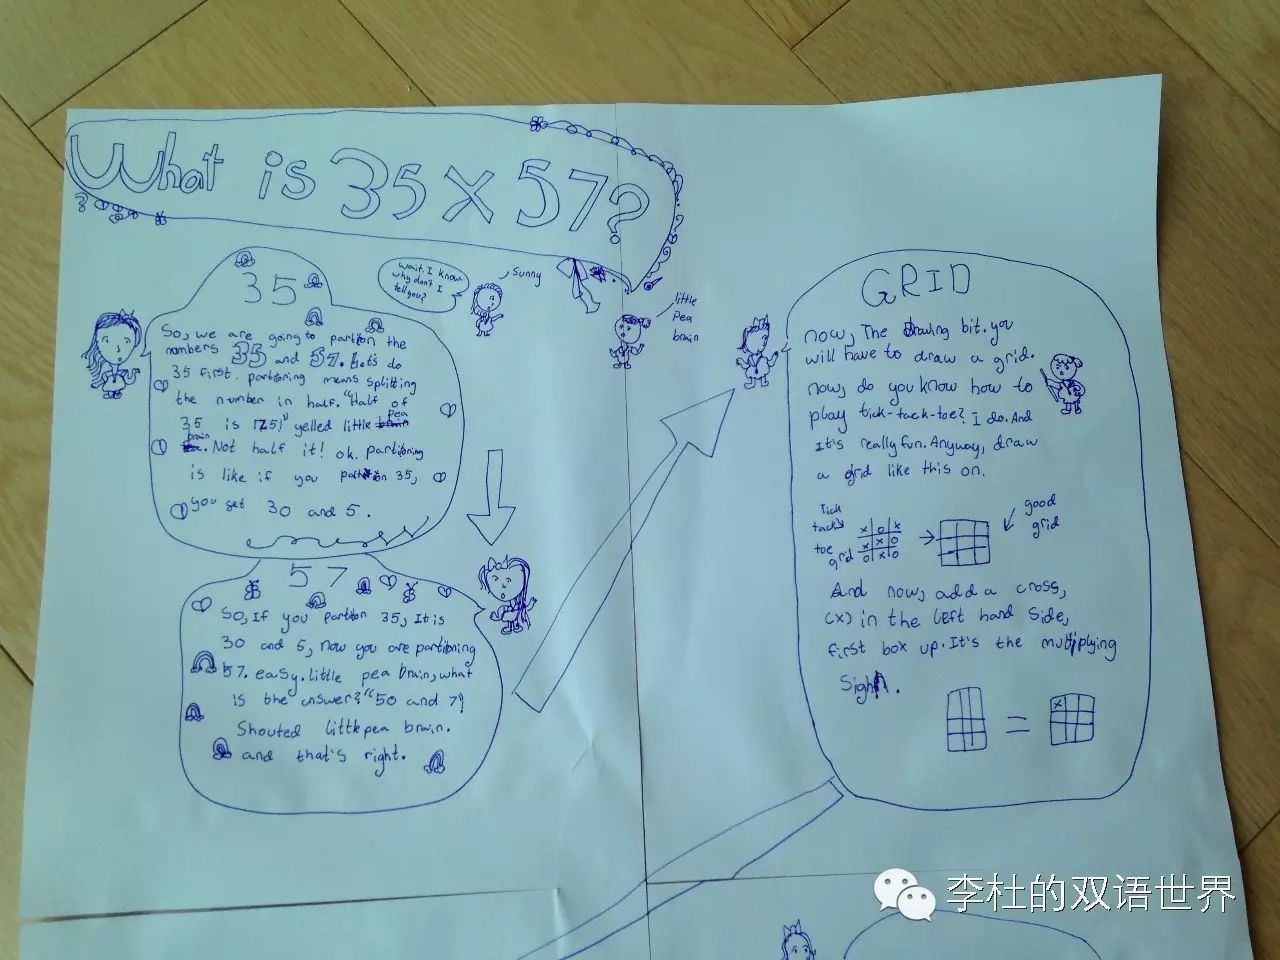 What is 35 x 57?
35
So, we are going to partition the
numbers 35 and 57. Let's do
35 first. partitioning means splitting
the number in half. "Half of
35 is 
yelled little pea
brain. Not half it! ok. partitioning
is like if you partition 35,
you get 30 and 5.
wait. I know
why don't I
tell you?
Sunny
little
Pea
brain
57
So, If you partition 35, It is
30 and 5, Now you are partitioning
57. easy. little pea brain, what
is the answer? "50 and 7"!
Shouted little pea brain.
and that's right.
GRID
now, The drawing bit. you
will have to draw a grid.
now, do you know how to
play tick-tack-toe? I do. And
It's really fun. Anyway, draw
a grid like this on.
Tick
tack
toe
grid
x o x
x x o
o x o
good
grid
And now, add a cross,
(x) in the left hand side,
first box up. It's the multiplying
Sign.
=
x
李杜的双语世界